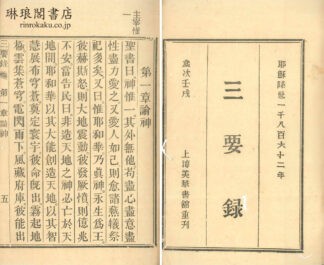 琳琅閣書店
rinrokaku.co.jp
耶穌降世一千八百六十二年
三要錄
歲次壬戌
上海美華書館重刊
主宰惟
一
第一章論神
聖書曰神惟一其外無他苟心盡意盡
性盡力愛之又愛人如己則愈諸燔犧祭
祀多矣又曰惟耶和華乃眞神永生爲王
彼赫斯怒則大地震動彼發厥憤則億兆
不安當告民曰非造天地之神必亡於天
地間耶和華以其大能創造天地以其智
慧展布穹蒼奠定寰宇彼命旣出霧起地
極雲集蒼穹電閃雨下風藏府庫彼能出
三要錄 第一章論神 五